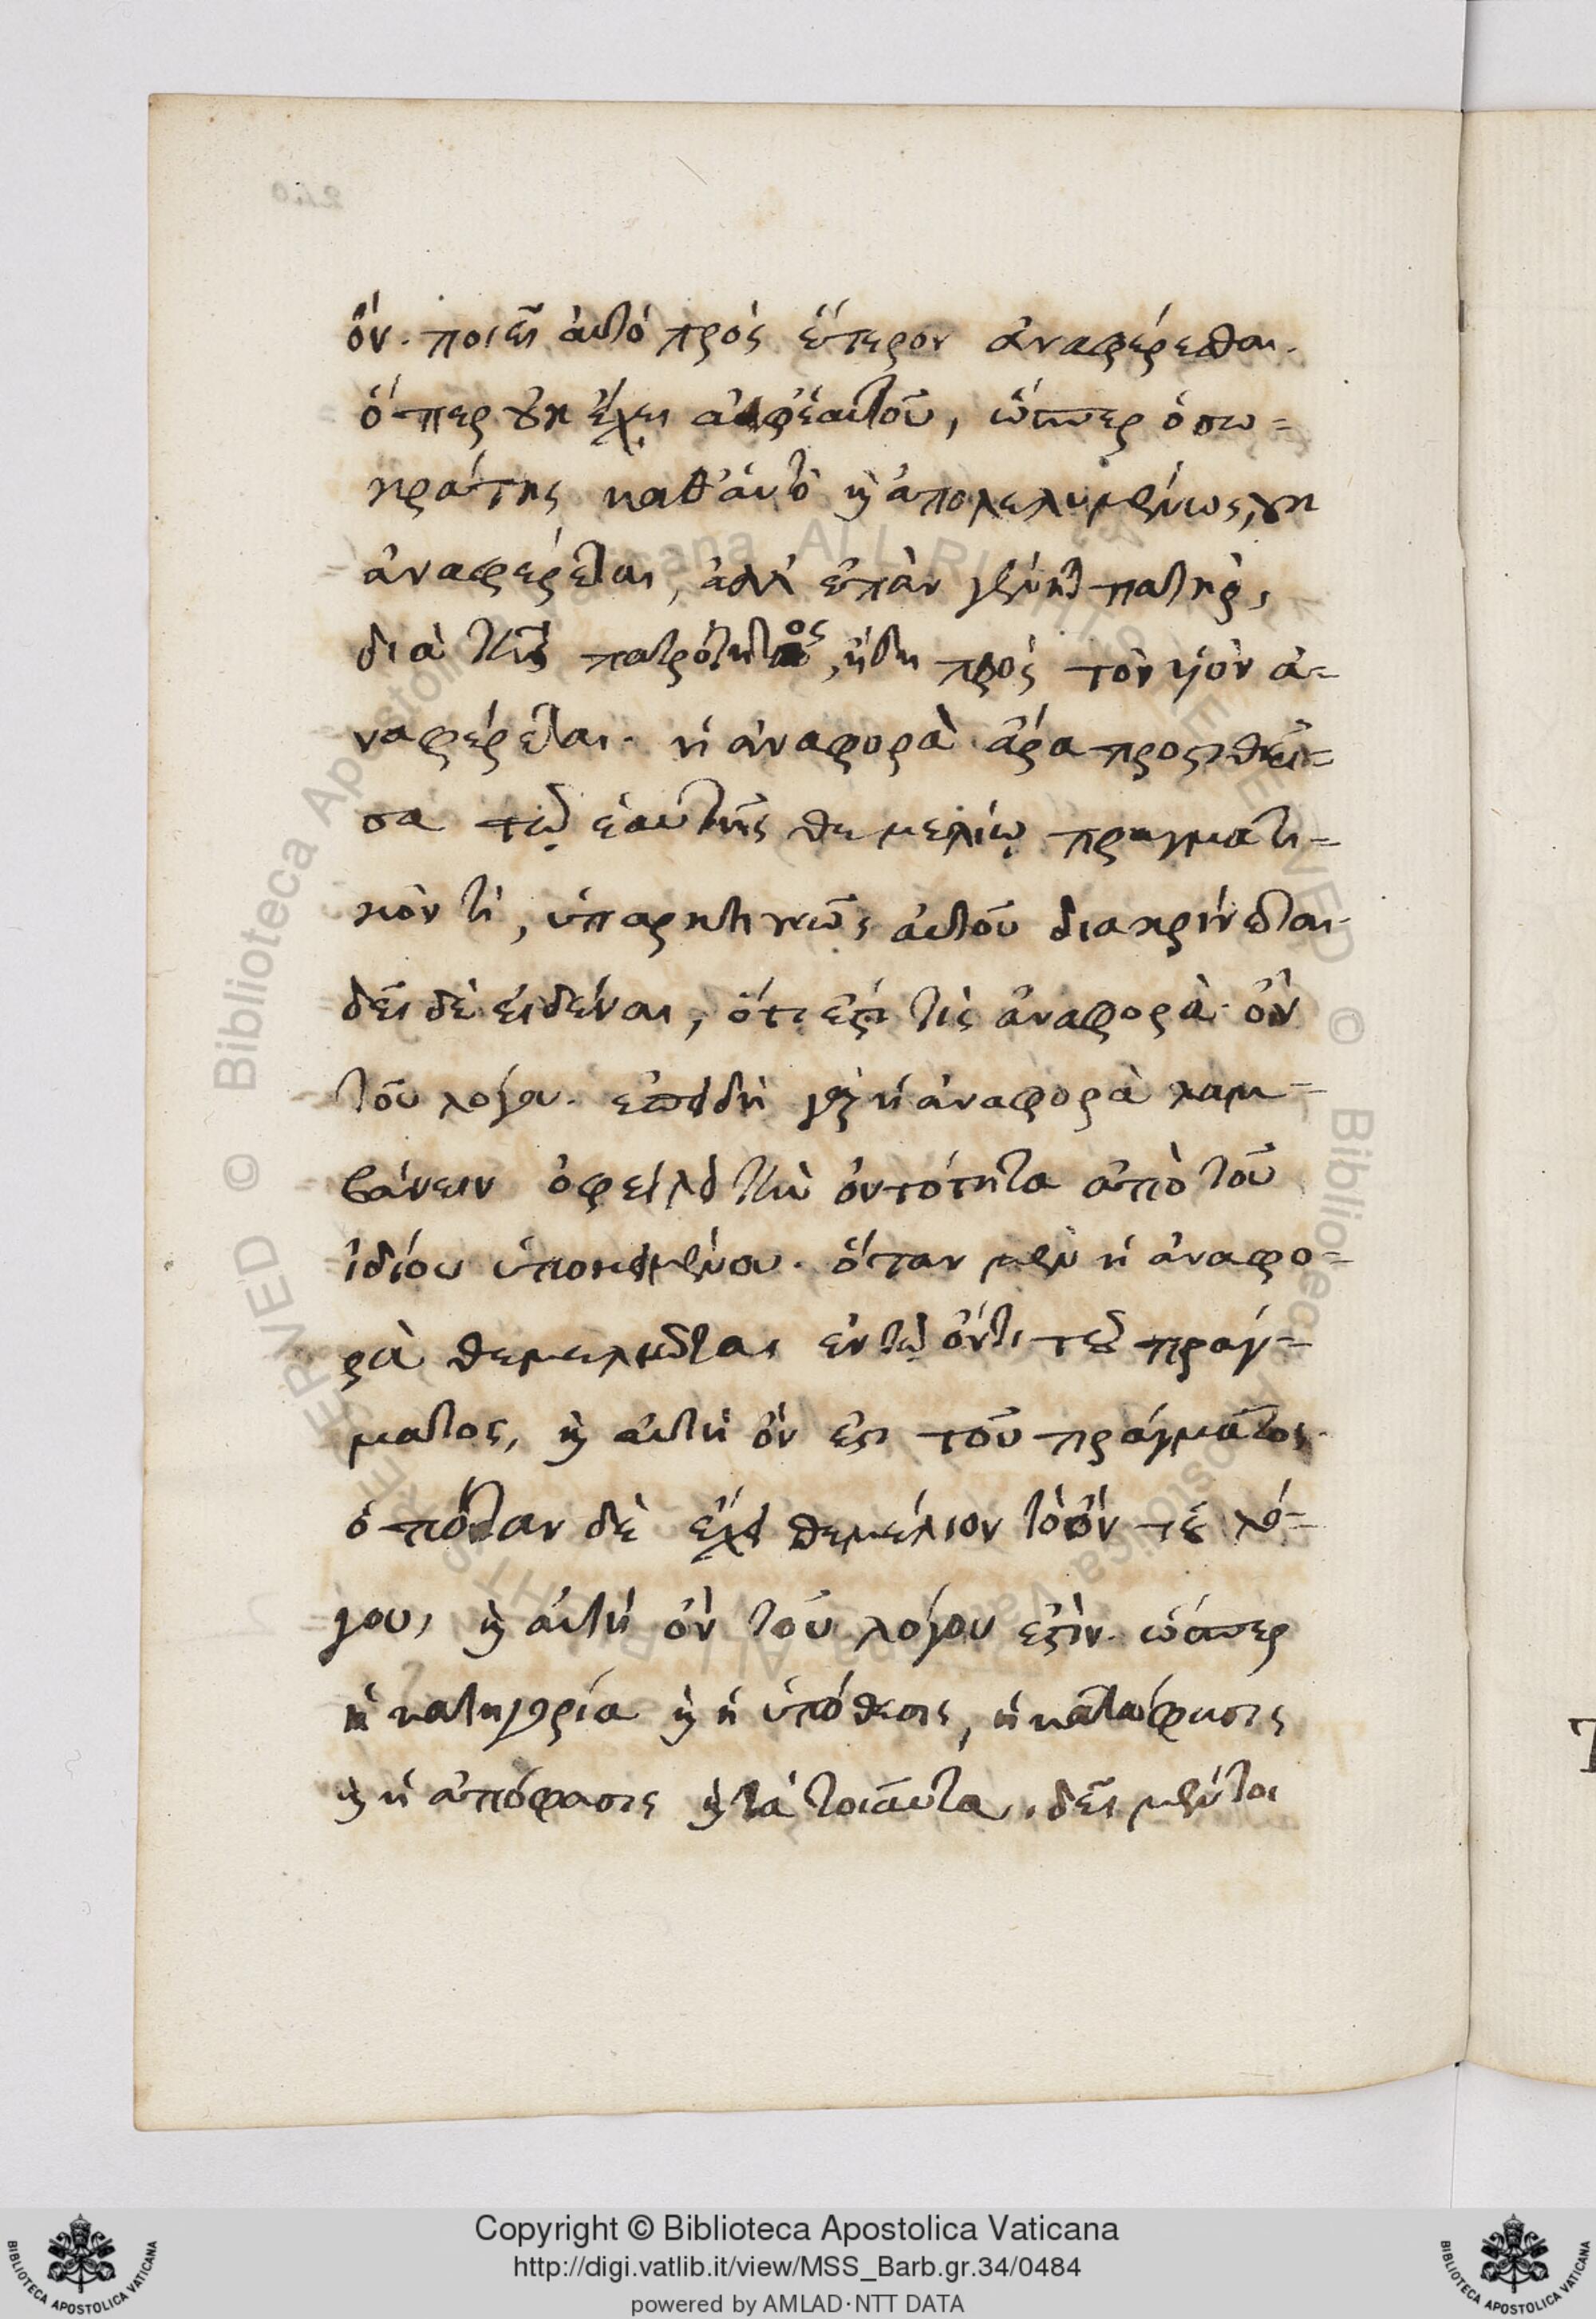 ὄν. ποιεῖ αὐτὸ πρὸς ἕτερον ἀναφέρεσθαι.
ὅπερ οὐκ ἔχει ἀφ' ἑαυτοῦ, ὥσπερ ὁ σω=
κράτης καθ' αὑτὸ καὶ ἀπολελυμένως, οὐκ
ἀναφέρεται, ἀλλ' ἐπὰν γένηται πατὴρ,
διὰ τῆς πατρότητος, ἤδη πρὸς τὸν υἱὸν ἀ=
ναφέρεται. ἡ ἀναφορὰ ἄρα προστιθεῖ=
σα τῷ ἑαυτῆς θεμελίῳ πραγματι=
κόν τι, ὑπαρκτικῶς αὐτοῦ διακρίνεται.
δεῖ δὲ εἰδέναι, ὅτι ἐστί τις ἀναφορὰ ὂν
τοῦ λόγου. ἐπειδὴ γὰρ ἡ ἀναφορὰ λαμ=
βάνειν ὀφείλει τὴν ὀντότητα ἀπὸ τοῦ
ἰδίου ὑποκειμένου. ὅταν μὲν ἡ ἀναφο=
ρὰ θεμελιῶται ἐν τῷ ὄντι τοῦ πράγ=
ματος, καὶ αὐτὴ ὄν ἐστι τοῦ πράγματος.
ὁπόταν δὲ ἔχει θεμέλιον τὸ ὂν τοῦ λό=
γου, καὶ αὐτὴ ὂν τοῦ λόγου ἐστίν. ὥσπερ
ἡ κατηγορία καὶ ἡ ὑπόθεσις, ἡ κατάφασις
καὶ ἡ ἀπόφασις καὶ τὰ τοιαῦτα. δεῖ μέντοι
Copyright © Biblioteca Apostolica Vaticana
http://digi.vatlib.it/view/MSS_Barb.gr.34/0484
powered by AMLAD·NTT DATA